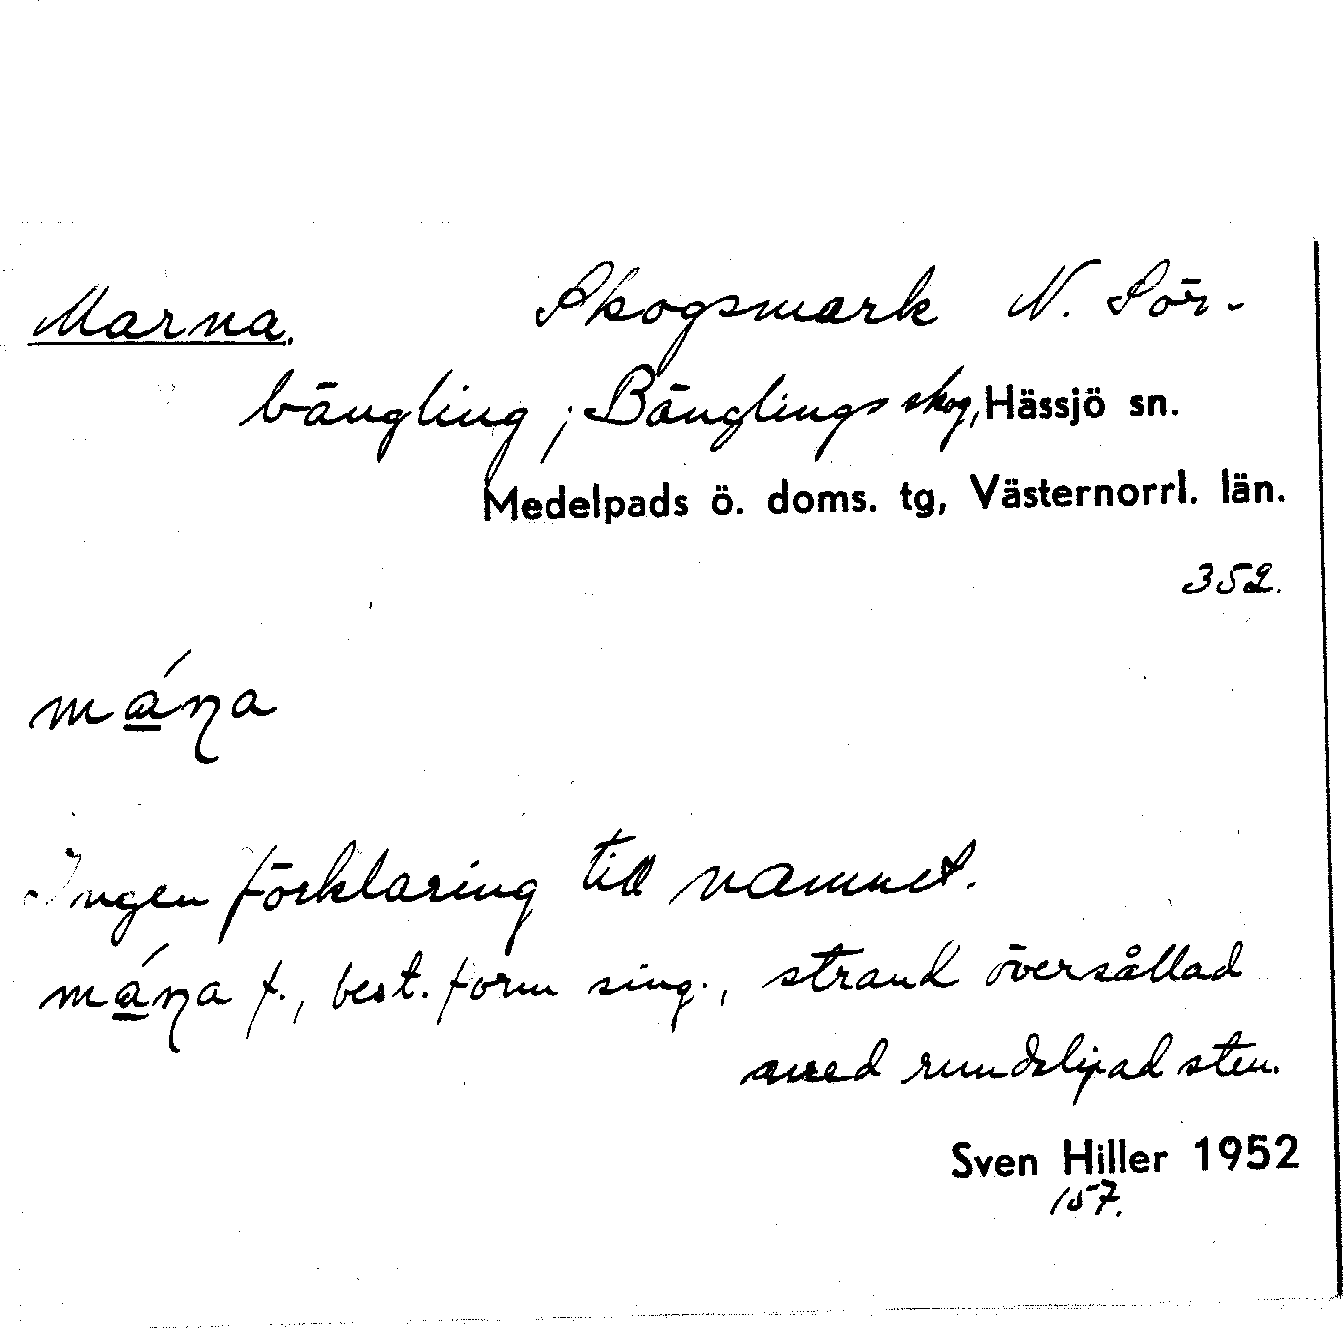 Marna. Skogsmark N. Sör-
bängling; Bänglings skog, Hässjö sn.
Medelpads ö. doms. tg, Västernorrl. län.
352.
má̱ɳa
Ingen förklaring till namnet.
má̱ɳa f., best. form sing., strand översållad
med rundslipad sten.
Sven Hiller 1952
157.